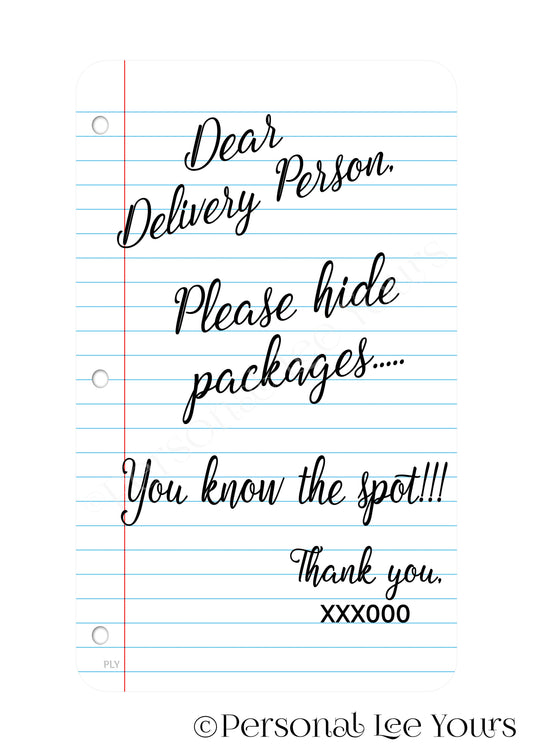 Dear
Delivery Person,
Please hide
packages.....
You know the spot!!!
Thank you,
XXXOOO
PLY
©Personal Lee Yours
©Personal Lee Yours